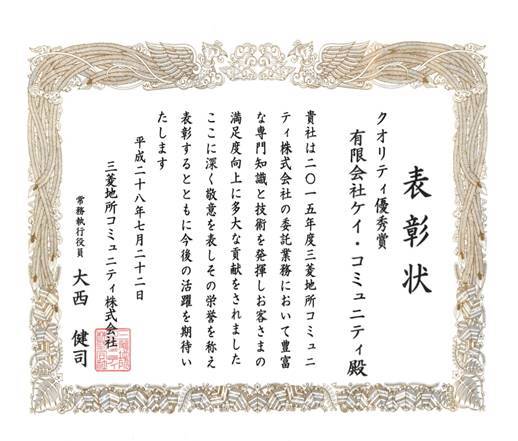 表彰状
クオリティ優秀賞
有限会社ケイ・コミュニティ殿
貴社は二〇一五年度三菱地所コミュニ
ティ株式会社の委託業務において豊富
な専門知識と技術を発揮しお客さまの
満足度向上に多大な貢献をされました
ここに深く敬意を表しその栄誉を称え
表彰するとともに今後の活躍を期待い
たします
平成二十八年七月二十二日
三菱地所コミュニティ株式会社
常務執行役員 大西 健司